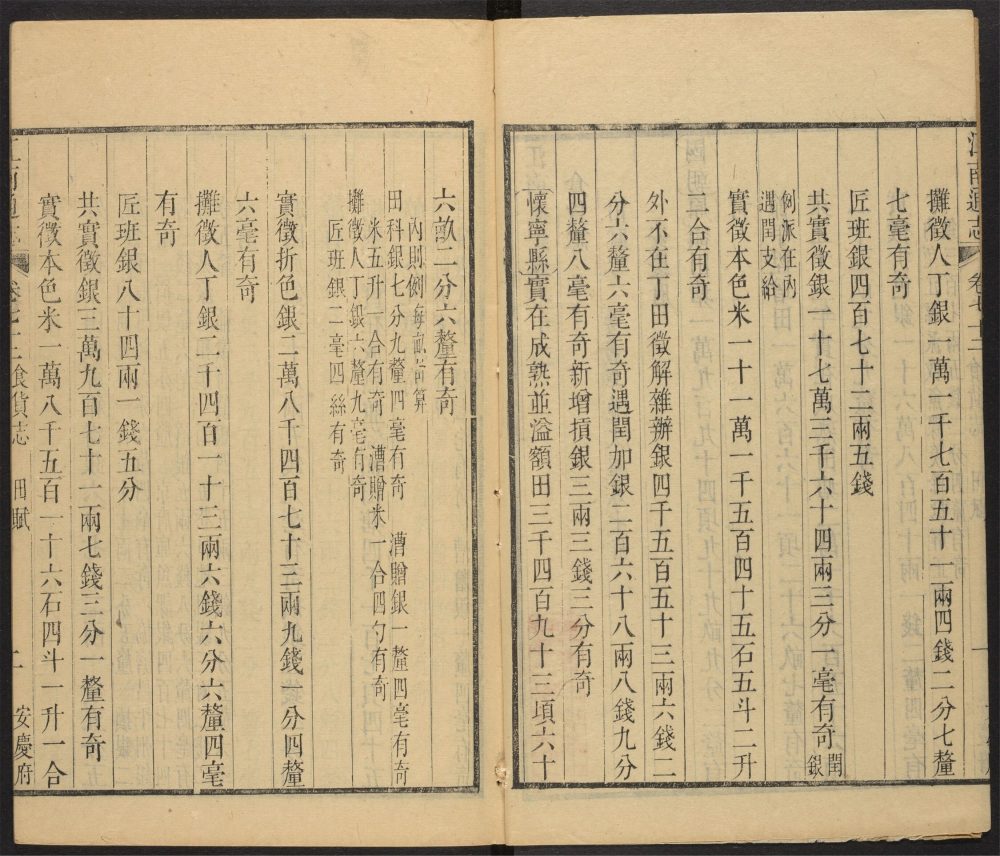 通志
卷七十三
攤徵人丁銀一萬一千七百五十一兩四錢二分七釐
七毫有奇
匠班銀四百七十二兩五錢
共實徵銀一十七萬三千六十四兩三分一毫有奇閏銀
例派在內
遇閏支給
實徵本色米一十一萬一千五百四十五石五斗二升
二合有奇
外不在丁田徵解雜辦銀四千五百五十三兩六錢二
分六釐六毫有奇遇閏加銀二百六十八兩八錢九分
四釐八毫有奇新增損銀三兩三錢三分有奇
懷寧縣實在成熟並溢額田三千四百九十三頃六十
六畝二分六釐有奇
內則例每畝營算
田科銀七分九釐四毫有奇 漕贈銀一釐四毫有奇
米五升一合有奇 漕贈米一合四勺有奇
攤徵人丁銀六釐九毫有奇
匠班銀二毫四絲有奇
實徵折色銀二萬八千四百七十三兩九錢一分四釐
六毫有奇
攤徵人丁銀二千四百一十三兩六錢六分六釐四毫
有奇
匠班銀八十四兩一錢五分
共實徵銀三萬九百七十一兩七錢三分一釐有奇
實徵本色米一萬八千五百一十六石四斗一升一合
通志
卷七十三食貨志 田賦 二 安慶府